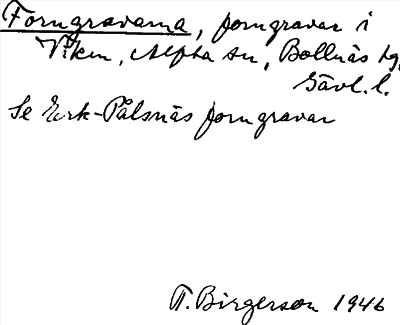 Forngravarna, forngravar i
Viken, Alfta sn, Bollnäs tg,
Gävl. l.
Se Erk-Pålsnäs forngravar
T. Birgerson 1946